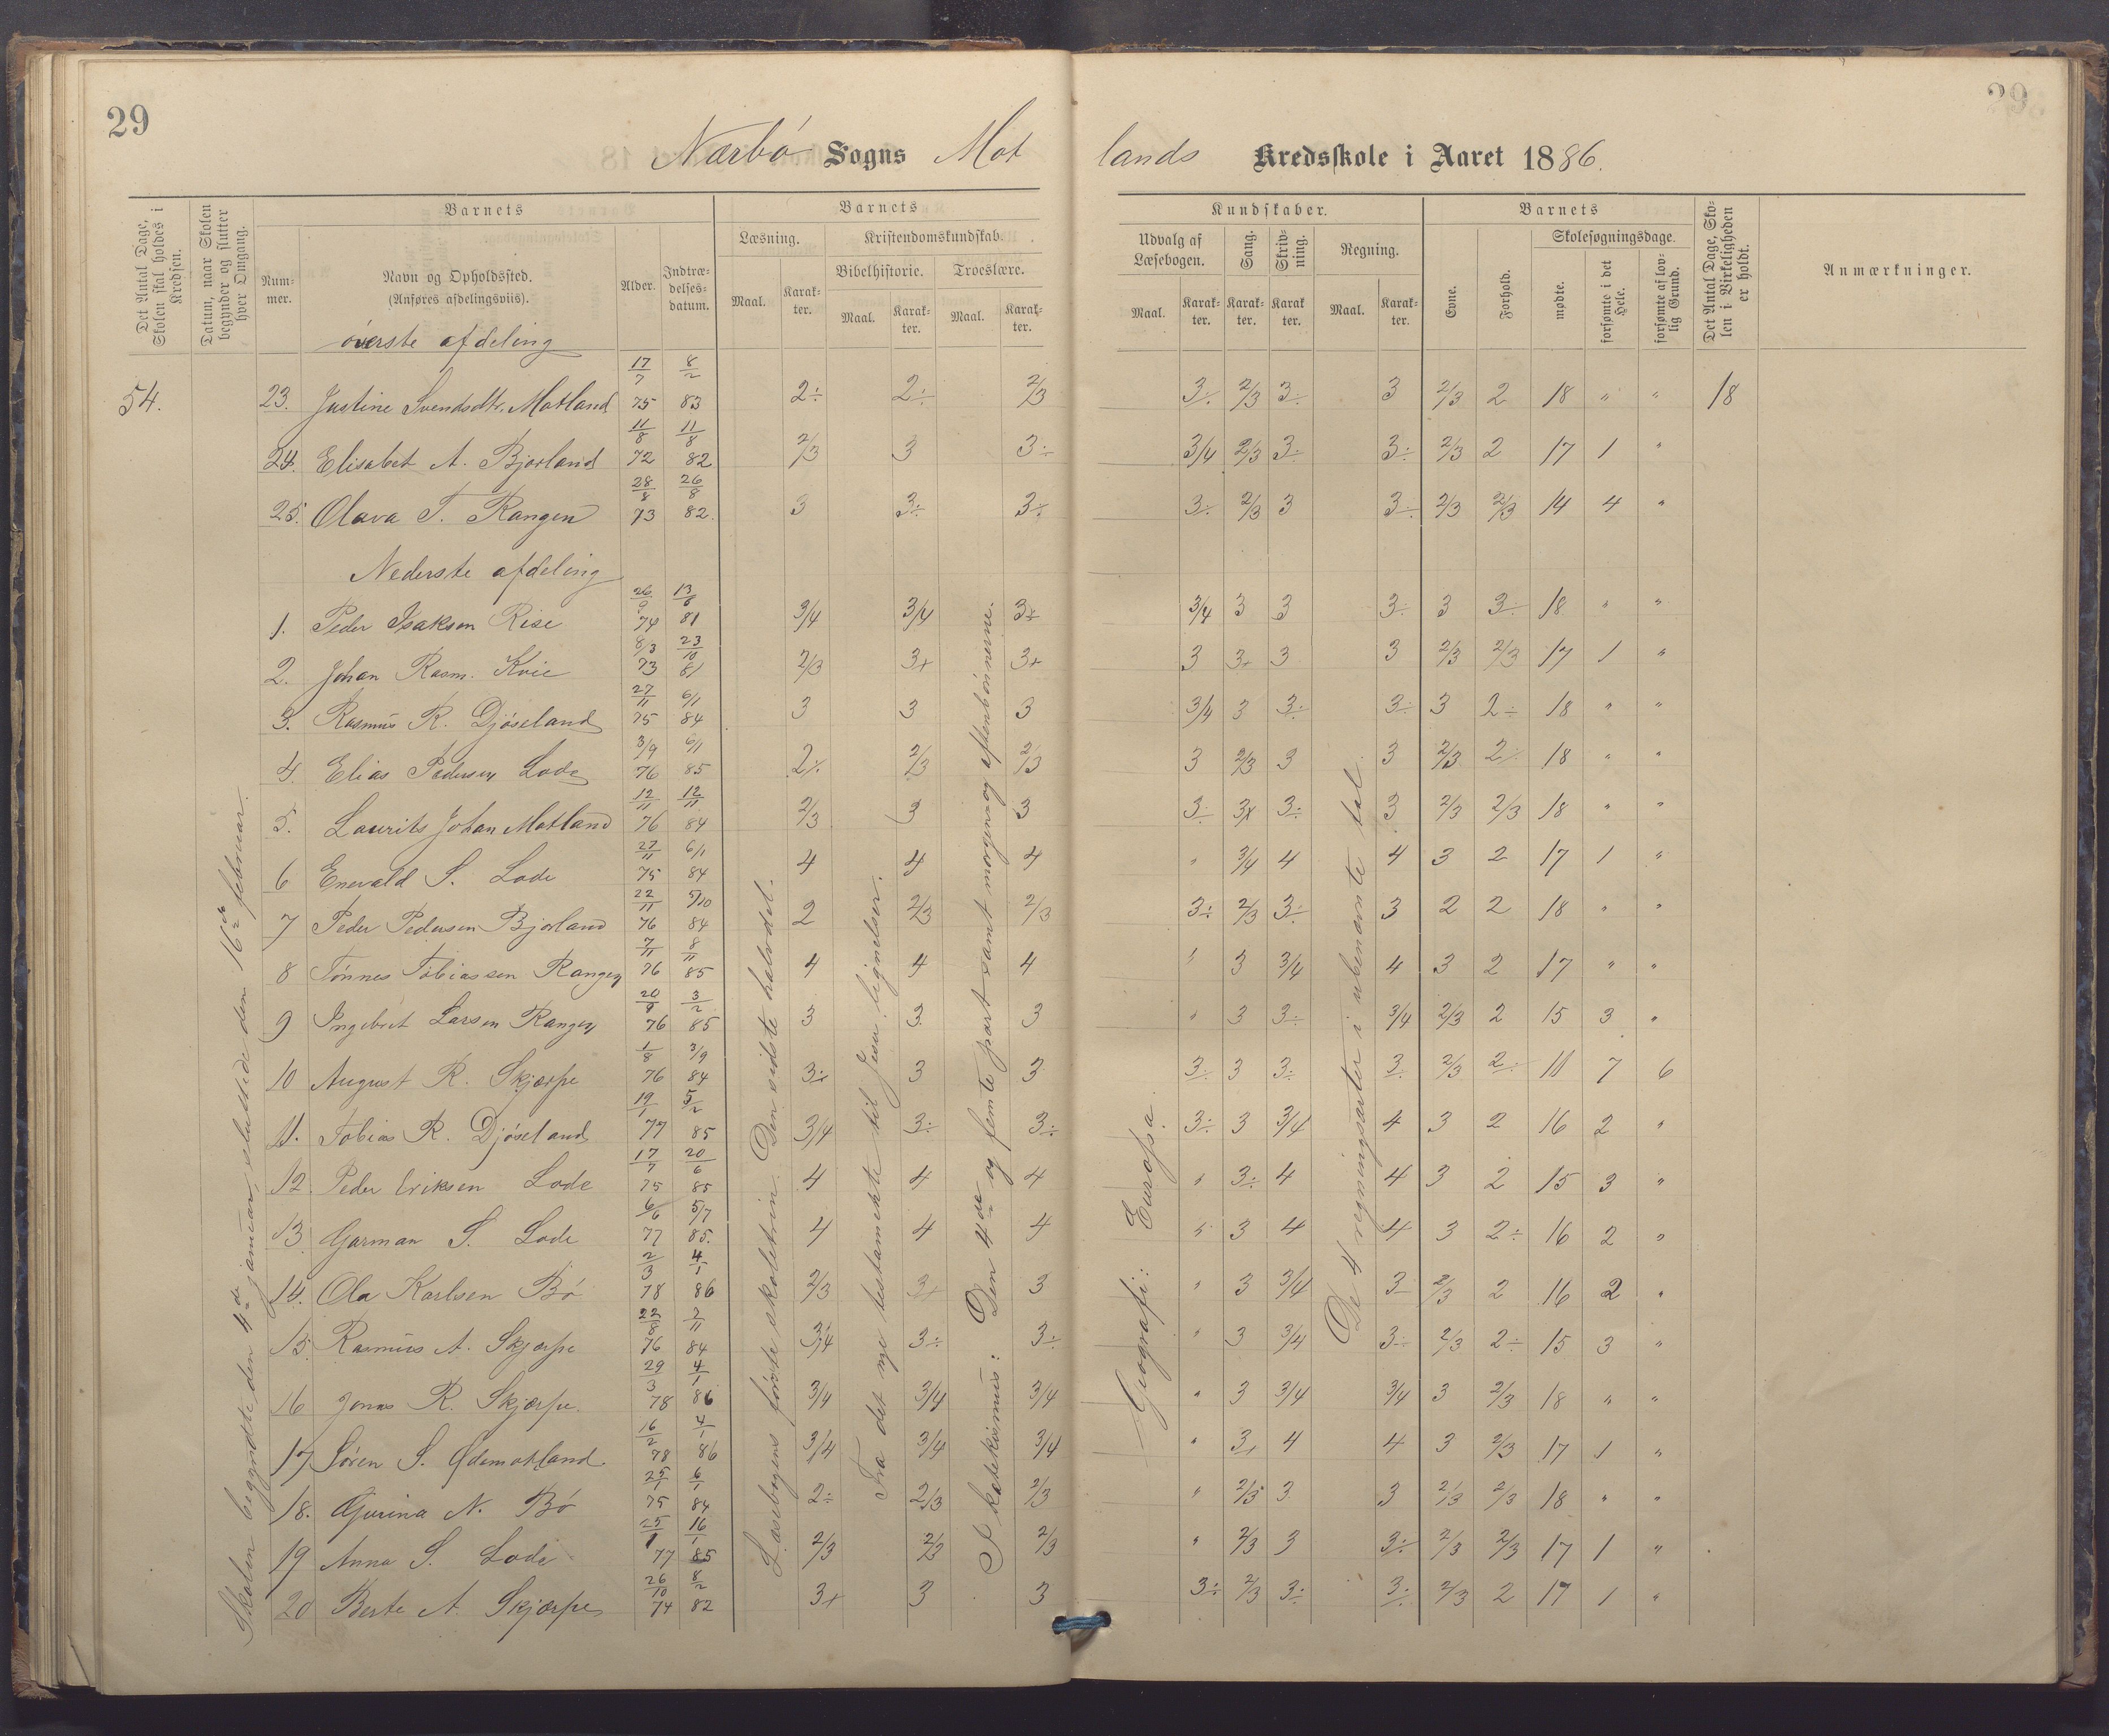 29
29
Nærbø Sogns Mot lands Kredsskole i Aaret 1886.
Det Antal Dage, Skolen skal holdes i Kredsen.
Datum, naar Skolen begynder og slutter hver Omgang.
Barnets
Nummer.
Navn og Opholdssted.
(Anføres afdelingsviis).
Alder.
Indtrædelsesdatum.
Barnets
Kundskaber.
Læsning.
Maal.
Karakter.
Kristendomskundskab.
Bibelhistorie.
Maal.
Karakter.
Troeslære.
Maal.
Karakter.
Udvalg af Læsebogen.
Maal.
Karakter.
Sang.
Karakter.
Skrivning.
Karakter.
Regning.
Maal.
Karakter.
Barnets
Evne.
Forhold.
Skolesøgningsdage.
mødte.
forsømte i det Hele.
forsømte af lovlig Grund.
Det Antal Dage, Skolen i Virkeligheden er holdt.
Anmærkninger.
øverste afdeling
54. 23. Justine Svendsdtr. Motland 17/7 75 8/2 83 2÷ 2÷ 2/3 3÷ 2/3 3÷ 3 2/3 2 18 " " 18
24. Elisabet A. Bjorland 11/8 72 11/8 82 2/3 3 3÷ 3/4 2/3 3÷ 3÷ 2/3 2 17 1 "
25. Olava T. Rangen 28/8 73 26/8 82. 3 3÷ 3÷ 3÷ 2/3 3 3÷ 2/3 2/3 14 4 "
Nederste afdeling
1. Peder Isaksen Rise 26/9 74 13/8 81 3/4 3/4 3+ 3/4 3 3 3÷ 3 3÷ 18 " "
2. Johan Rasm. Kvie 8/3 73 23/10 81 2/3 3+ 3+ 3 3+ 3 3 2/3 2/3 17 1 "
3. Rasmus R. Djøseland 27/11 75 6/1 84 3 3 3 3/4 3 3÷ 3÷ 3 2÷ 18 " "
4. Elias Pedersen Lode 3/9 76 6/1 85 2÷ 2/3 2/3 3 2/3 3 3 2/3 2÷ 18 " "
5. Laurits Johan Motland 12/11 76 12/11 84 2/3 3 3 3÷ 3+ 3÷ 3 2/3 2/3 18 " "
6 Enevald S. Lode 27/11 75 6/1 84 4 4 4 " 3/4 4 4 3 2 17 1 "
7 Peder Pedersen Bjorland 22/11 76 5/10 84 2 2/3 2/3 3÷ 2/3 3÷ 3 2 2 18 " "
8 Tønnes Tobiassen Rangen 7/11 76 8/11 85 4 4 4 " 3 3/4 4 3 2 17 " "
9 Ingebret Larsen Rangen 20/8 76 3/2 85 3 3 3 " 3 3÷ 3/4 2/3 2 15 3 "
10 August R. Skjærpe 1/8 76 3/9 84 3+ 3 3 3÷ 3 3÷ 3÷ 2/3 2÷ 11 7 6
11. Tobias R. Djøseland 19/1 77 5/2 85 3/4 3÷ 3÷ 3÷ 3 3/4 4 3 2 16 2 "
12. Peder Eriksen Lode 17/7 75 20/6 85 4 4 4 " 3÷ 4 4 3 2 15 3 "
13. Garman S. Lode 6/6 77 5/7 85. 4 4 4 " 3 4 4 3 2÷ 16 2 "
14. Ola Karlsen Bø 2/3 78 4/1 86 2/3 3+ 3 " 3 3/4 3 2/3 2 16 2 "
15. Rasmus A. Skjærpe 22/8 76 2/11 84 3/4 3÷ 3÷ " 3 3/4 3÷ 2/3 2÷ 15 3 "
16 Jonas R. Skjærpe. 29/3 78 4/1 86 3/4 3/4 3/4 " 3 3/4 3/4 3 2/3 18 " "
17 Søren S. Ødemotland 16/2 78 4/1 86 3/4 3/4 3/4 " 3+ 4 4 3 2/3 17 1 "
18. Gurina N. Bø 25/1 75 6/1 84 2÷ 2/3 2/3 " 2/3 3 3 2/3 2/3 18 " "
19 Anna S. Lode 25/1 77 16/1 85 2/3 2/3 2/3 " 2/3 3 3÷ 2/3 2/3 17 1 "
20 Berte A. Skjærpe 26/10 74 8/2 82 3+ 3 3 3÷ 2/3 3÷ 3÷ 2/3 2 17 1 "
Skolen begyndte den 4de januar, sluttede den 16de februar.
Læsebogens første skoletrin. Den sidste halvdel.
Fra det nye testamente til Jesu lignelser.
I katekismus: Den 4de og femte part samt morgen og aftenbønnerne.
Geografi: Europa.
De 4 regningsarter i ubenævnte tal.